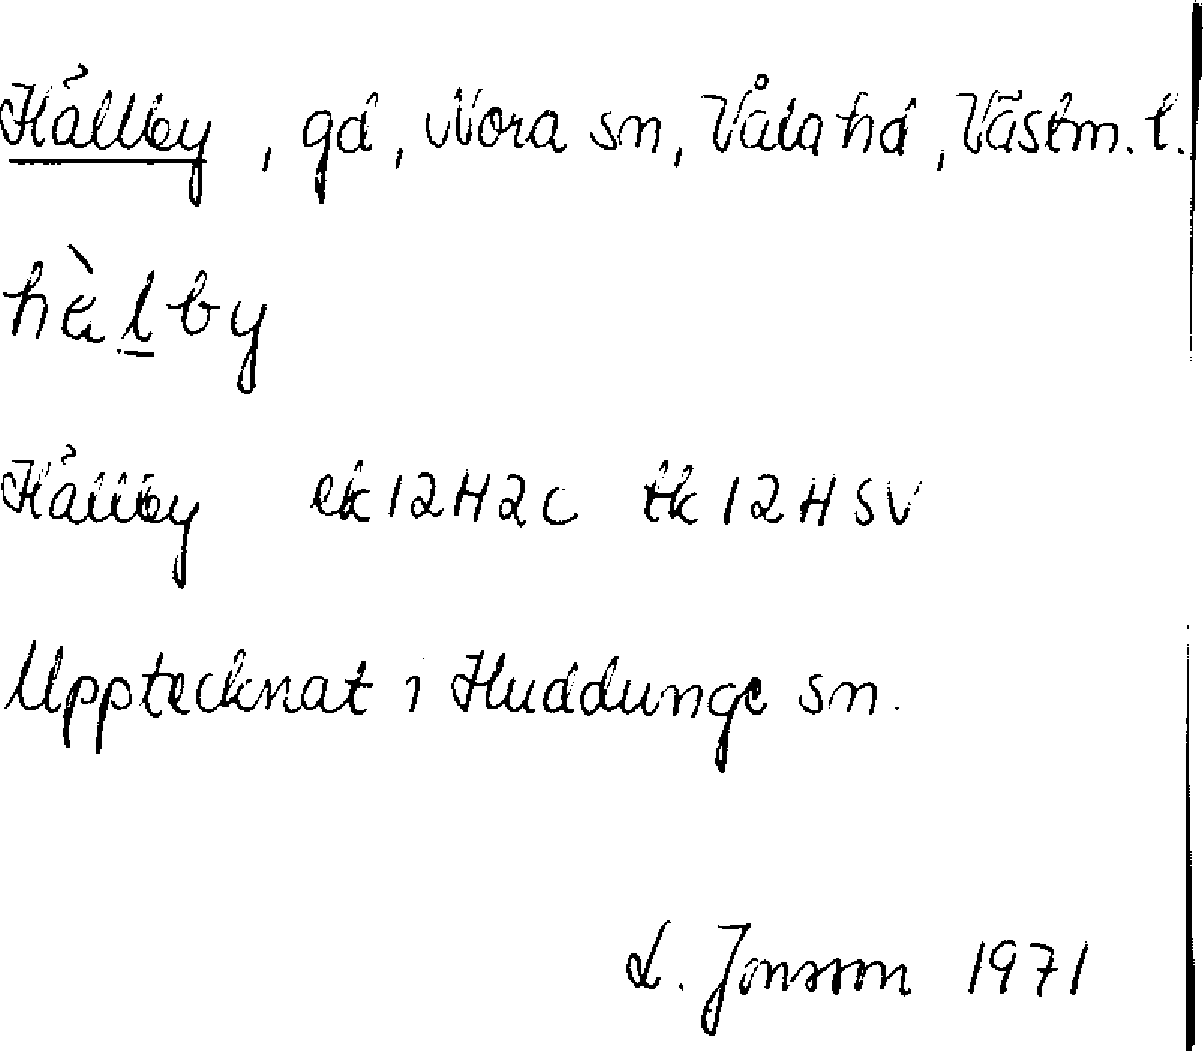 Hållby, gd, Nora sn, Våla hd, Västm. l.
hὲlby
Hållby ek 12H2c tk 12HSV
Upptecknat i Huddunge sn.
L. Jonsson 1971